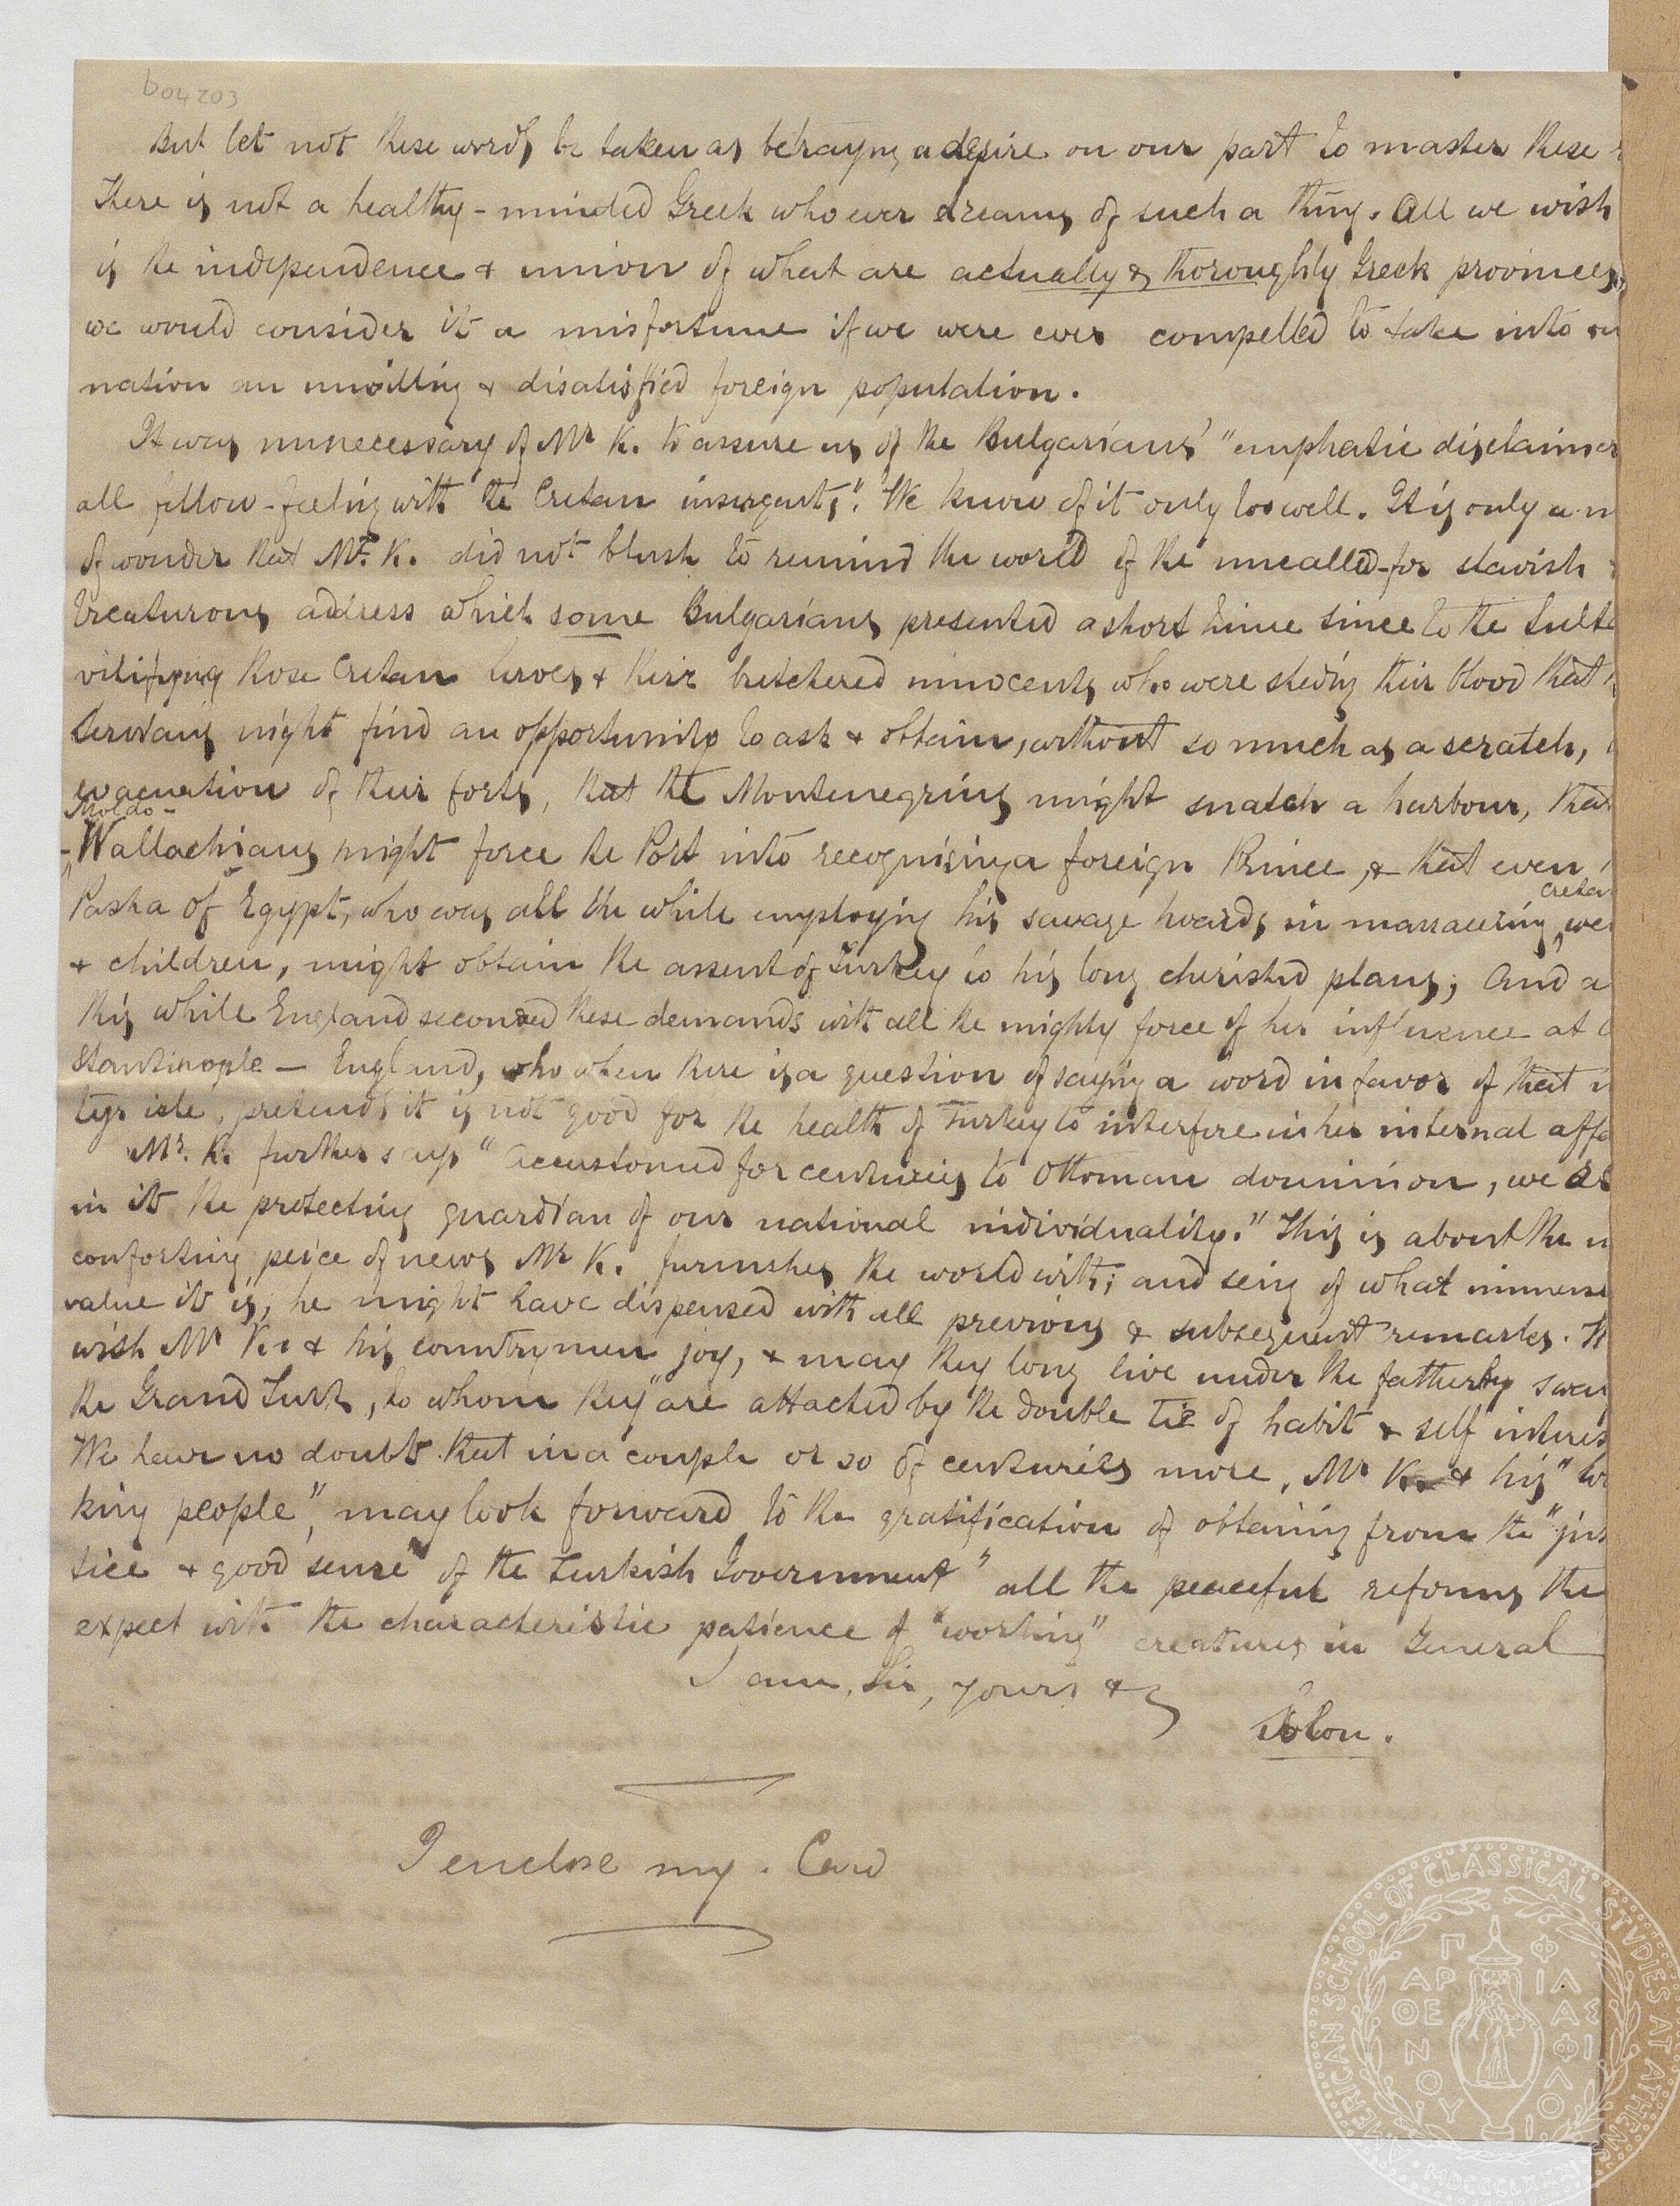 b04203
But let not these words be taken as betraying a desire on our part to master these
There is not a healthy-minded Greek who ever dreams of such a thing. All we wish
is the independence & union of what are actually & thoroughly Greek provinces,
we would consider it a misfortune if we were ever compelled to take into our
nation an unwilling & disatisfied foreign population.
It was unnecessary of Mr K. to assure us of the Bulgarians' "emphatic disclaimer
all fellow-feeling with the Cretan insurgents". We know of it only too well. It is only a m
of wonder that Mr. K. did not blush to remind the world of the uncalled-for slavish
treaturous address which some Bulgarians presented a short time since to the Sulta
vilifying those Cretan heroes & their butchered innocents who were sheding their blood that
Servians might find an opportunity to ask & obtain, without so much as a scratch,
evacuation of their forts, that the Montenegrins might snatch a harbour, that
Moldo-
-Wallachians might force the Port into recognising a foreign Prince, & that even
Cretan
Pasha of Egypt, who was all the while employing his savage hoards in massacring wo
& children, might obtain the assent of Turkey to his long cherished plans; And a
this while England seconded these demands with all the mighty force of her influence at C
stantinople — England, who when there is a question of saying a word in favor of that
tyr isle, pretends it is not good for the health of Turkey to interfere in her internal affa
Mr. K. further says "Accustomed for centuries to Ottoman dominion, we
in it the protecting guardian of our national individuality." This is about the
comforting peice of news Mr K. furnishes the world with; and seing of what immens
value it is, he might have dispensed with all previous & subsequent remarks. We
wish Mr K. & his countrymen joy, & may they long live under the fatherly sway
the Grand Turk, to whom they "are attached by the double tie of habit & self interes
We have no doubt that in a couple or so of centuries more, Mr K. & his "wor
king people", may look forward to the gratification of obtaining from the "jus
tice & good sense of the Turkish Government" all the peaceful reforms the
expect with the characteristic patience of "working" creatures in General
I am, Sir, yours &
Solon.
I enclose my Card
AMERICAN SCHOOL OF CLASSICAL STVDIES AT ATHENS
ΠΑΡΘΕΝΟΥ
ΦΙΛΑΣ ΦΙΛΟΙ
MDCCCLXXXI